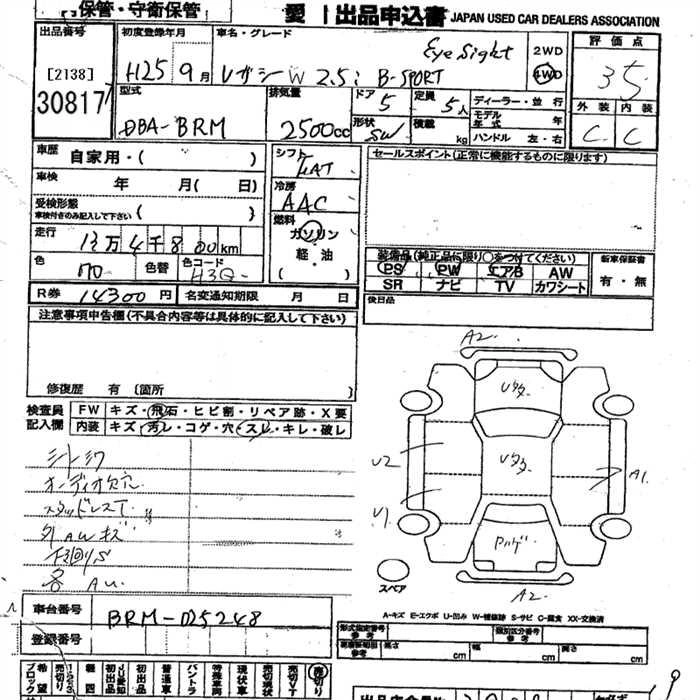 保管・守衛保管
愛 出品申込書 JAPAN USED CAR DEALERS ASSOCIATION
出品番号
[2138]
30817
初度登録年月
H25 9月
車名・グレード
Eye Sight
レガシーW 2.5i B-SPORT
2WD
4WD
評価点
3.5
外装 内装
C C
型式
DBA-BRM
排気量
2500cc
ドア
5
形状
SW
定員
5人
積載
kg
ディーラー・並行
モデル年式 年
ハンドル 左・右
車歴 自家用・( )
車検 年 月( 日)
受検形態
車検付きのみ記入して下さい ( )
走行
13万4千800km
色
色替
色コード
H3Q
シフト
FAT
冷房
AAC
燃料
ガソリン
軽・油
( )
セールスポイント(正常に機能するものに限ります)
装備品(純正品に限り○をつけてください)
PS PW エアB AW
SR ナビ TV カワシート
新車保証書
有・無
R券 14300円 名変通知期限 月 日
後日品
注意事項申告欄(不具合内容等は具体的に記入して下さい)
修復歴 有 〔箇所 )
検査員記入欄
FW キズ・飛石・ヒビ割・リペア跡・X要
内装 キズ・汚レ・コゲ・穴・スレ・キレ・破レ
シートシワ
オーディオ欠穴
スタッドレスT.
外AWキズ
下廻りS
各AU.
A2
Uタタ
Uタタ
U2
U1
A1
A2
スペア
A-キズ E-エクボ U-凹み W-補修跡 S-サビ C-腐食 XX-交換済
車台番号 BRM-025248
登録番号
形式指定番号
参考
類別区分番号
参考
長さ cm 幅 cm 高さ cm
希望ブロック
売切り
軽四
初出品
JU愛知初出品
普通車
バントラ
特殊車両
現状車
売切り